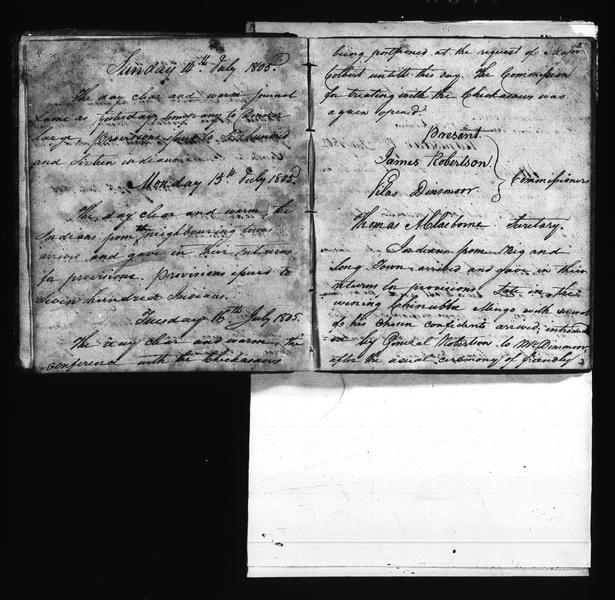 Sunday 14th July 1805.
The day clear and warm journal
same as yesterday
large Provisions issued to
and Sixteen indians
Monday 15th July 1805.
The day clear and warm the
Indians from the neighbouring towns
arrive and gave in their returns
for provisions. Provisions issued to
Seven hundred Indians.
Tuesday 16th July 1805.
The day clear and warm, the
conference with the Chickasaws
5
being postponed at the request of Major
Colbert untill this day. The Commission
for treating with the Chickasaws was
again opened.
Present
James Robertson
Silas Dinsmoor
Commissioners
Thomas A Claiborne Secretary.
Indians from Big and
Long Town arrived and gave in their
returns for provisions. Late in the
evening Chinubba Mingo with several
of his chosen confidents arrived, introduc
ed by General Robertson to Mr Dinsmoor
after the usual ceremony of friendly